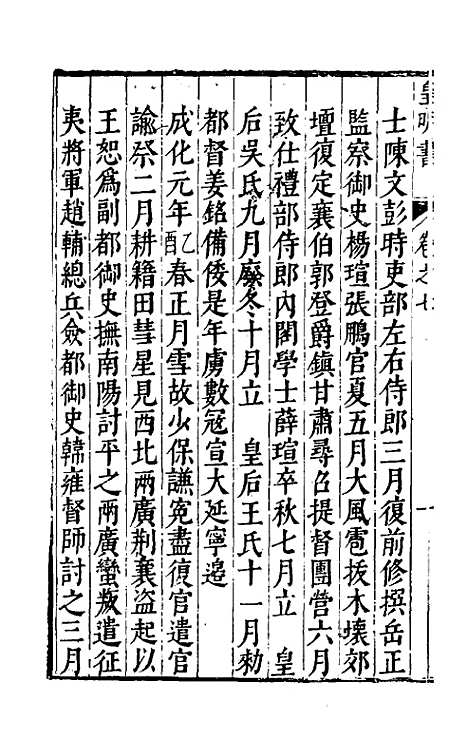 皇明書 卷之七
士陳文彭時吏部左右侍郎三月復前修撰岳正
監察御史楊瑄張鵬官夏五月大風雹拔木壞郊
壇復定襄伯郭登爵鎮甘肅尋召提督團營六月
致仕禮部侍郎內閣學士薛瑄卒秋七月立 皇
后吳氏九月廢冬十月立 皇后王氏十一月勑
都督姜銘備倭是年虜數冦宣大延寧邉
成化元年乙酉春正月雪故少保謙寃盡復官遣官
諭祭二月耕籍田彗星見西北兩廣荆襄盗起以
王恕爲副都御史撫南陽討平之兩廣蠻叛遣征
夷將軍趙輔總兵僉都御史韓雍督師討之三月